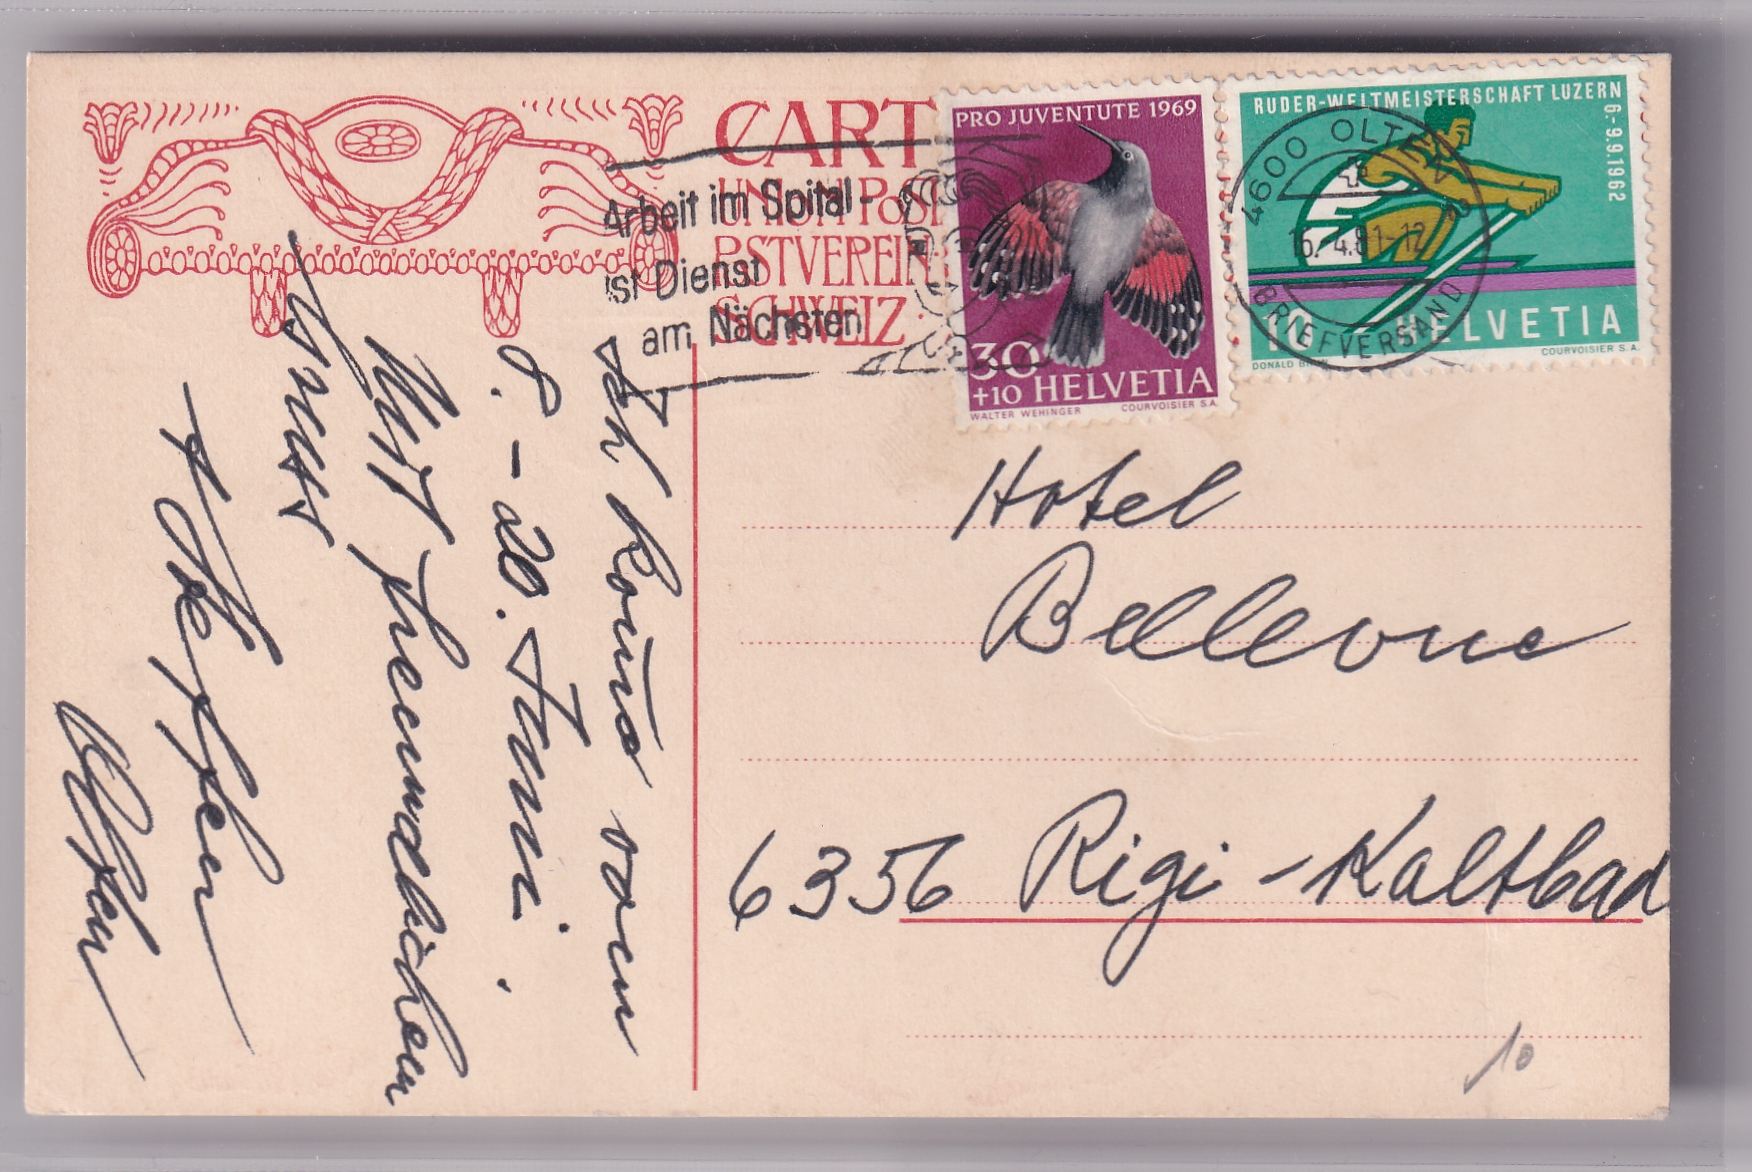 CART
UNION POST
PSTVEREIN
SCHWEIZ
Arbeit im Spital -
ist Dienst
am Nächsten
PRO JUVENTUTE 1969
30
+10 HELVETIA
WALTER WEHINGER COURVOISIER S.A.
RUDER-WELTMEISTERSCHAFT LUZERN
6.-9.9.1962
10 HELVETIA
COURVOISIER S.A.
4600 OLTEN
4.81-12
BRIEFVERSAND
Ich komme vom
8. - 20. Juni.
Mit freundlichem
Gruss
Olten
Hotel
Bellevue
6356 Rigi - Kaltbad
10